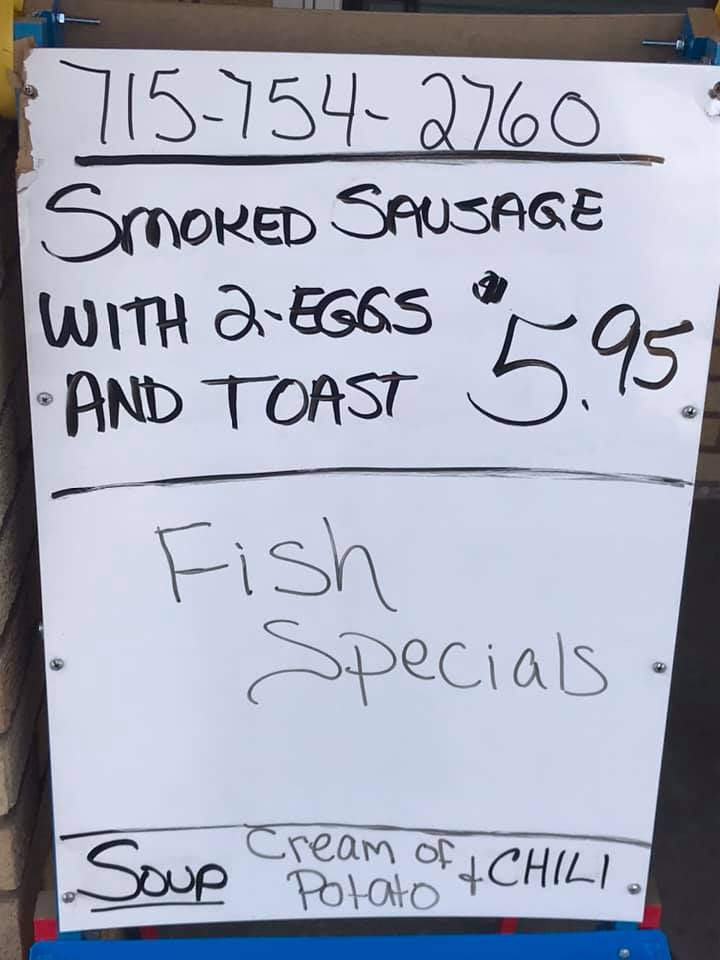 715-754-2760
SMOKED SAUSAGE
WITH 2-EGGS
AND TOAST
$5.95
Fish
Specials
Soup
Cream of
Potato
+ CHILI